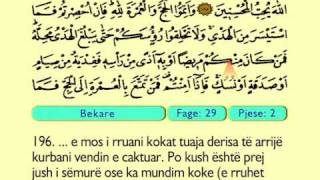 ٱللَّهَ يُحِبُّ ٱلْمُحْسِنِينَ وَأَتِمُّوا۟ ٱلْحَجَّ وَٱلْعُمْرَةَ لِلَّهِ فَإِنْ أُحْصِرْتُمْ فَمَا
ٱسْتَيْسَرَ مِنَ ٱلْهَدْىِ وَلَا تَحْلِقُوا۟ رُءُوسَكُمْ حَتَّىٰ يَبْلُغَ ٱلْهَدْىُ مَحِلَّهُۥ
فَمَن كَانَ مِنكُم مَّرِيضًا أَوْ بِهِۦٓ أَذًى مِّن رَّأْسِهِۦ فَفِدْيَةٌ مِّن صِيَامٍ
أَوْ صَدَقَةٍ أَوْ نُسُكٍ فَإِذَآ أَمِنتُمْ فَمَن تَمَتَّعَ بِٱلْعُمْرَةِ إِلَى ٱلْحَجِّ فَمَا
Bekare Fage: 29 Pjese: 2
196. ... e mos i rruani kokat tuaja derisa të arrijë
kurbani vendin e caktuar. Po kush është prej
jush i sëmurë ose ka mundim koke (e rruhet